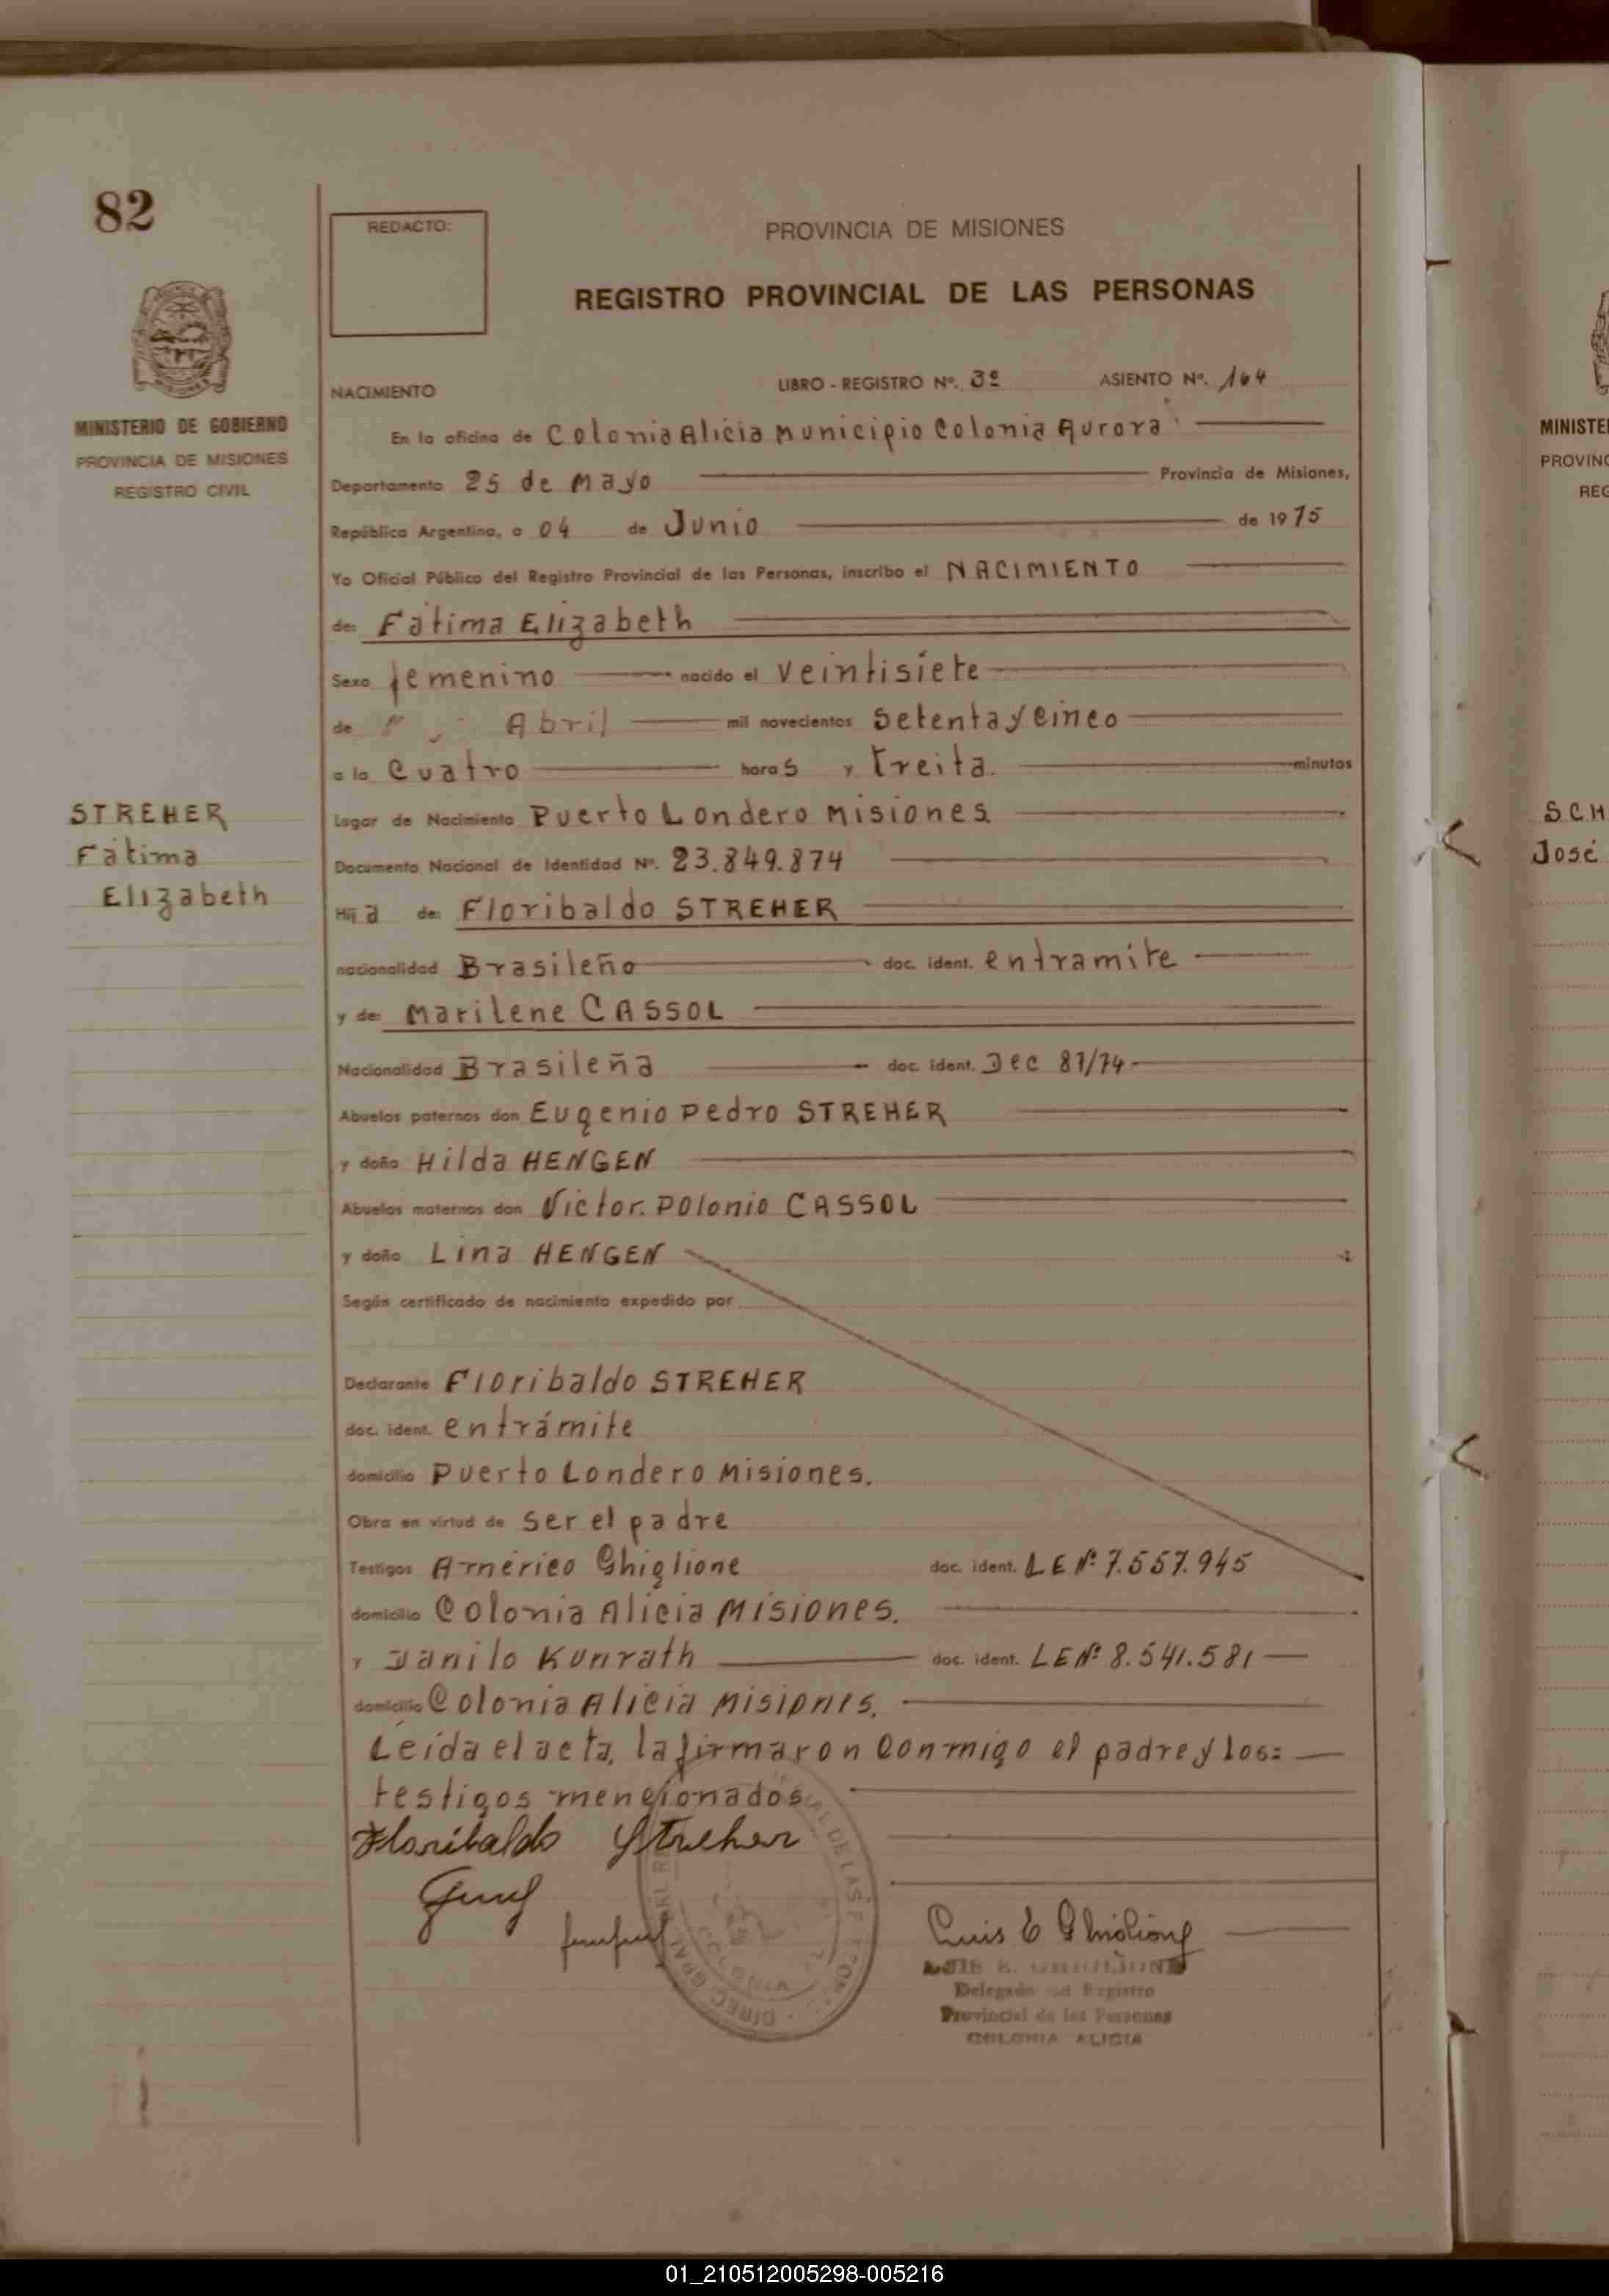 82
REDACTO:
PROVINCIA DE MISIONES
REGISTRO PROVINCIAL DE LAS PERSONAS
MINISTERIO DE GOBIERNO
PROVINCIA DE MISIONES
REGISTRO CIVIL
NACIMIENTO LIBRO - REGISTRO Nº. 3º ASIENTO Nº. 164
En la oficina de Colonia Alicia Municipio Colonia Aurora
Departamento 25 de Mayo Provincia de Misiones,
República Argentina, a 04 de Junio de 1975
Yo Oficial Público del Registro Provincial de las Personas, inscribo el NACIMIENTO
de: Fátima Elizabeth
Sexo femenino nacido el veintisiete
de Abril mil novecientos setenta y cinco
a la Cuatro horas y treita. minutos
STREHER
Fátima
Elizabeth
Lugar de Nacimiento Puerto Londero Misiones
Documento Nacional de Identidad Nº. 23.849.874
Hija de: Floribaldo STREHER
nacionalidad Brasileño doc. ident. entramite
y de: Marilene CASSOL
Nacionalidad Brasileña doc. ident. Dec 87/74
Abuelos paternos don Eugenio Pedro STREHER
y doña Hilda HENGEN
Abuelos maternos don Victor. Polonio CASSOL
y doña Lina HENGEN
Según certificado de nacimiento expedido por
Declarante Floribaldo STREHER
doc. ident. entrámite
domicilio Puerto Londero Misiones.
Obra en virtud de ser el padre
Testigos Américo Ghiglione doc. ident. LE Nº 7.557.945
domicilio Colonia Alicia Misiones.
y Danilo Kunrath doc. ident. LE Nº 8.541.581
domicilio Colonia Alicia Misiones.
Leída el acta, la firmaron conmigo el padre y los=
testigos mencionados
Floribaldo Streher
Luis E Ghiglione
LUIS E. GHIGLIONE
Delegado Registro
Provincial de las Personas
COLONIA ALICIA
MINISTE
PROVINC
REG
SCH
José
01_210512005298-005216